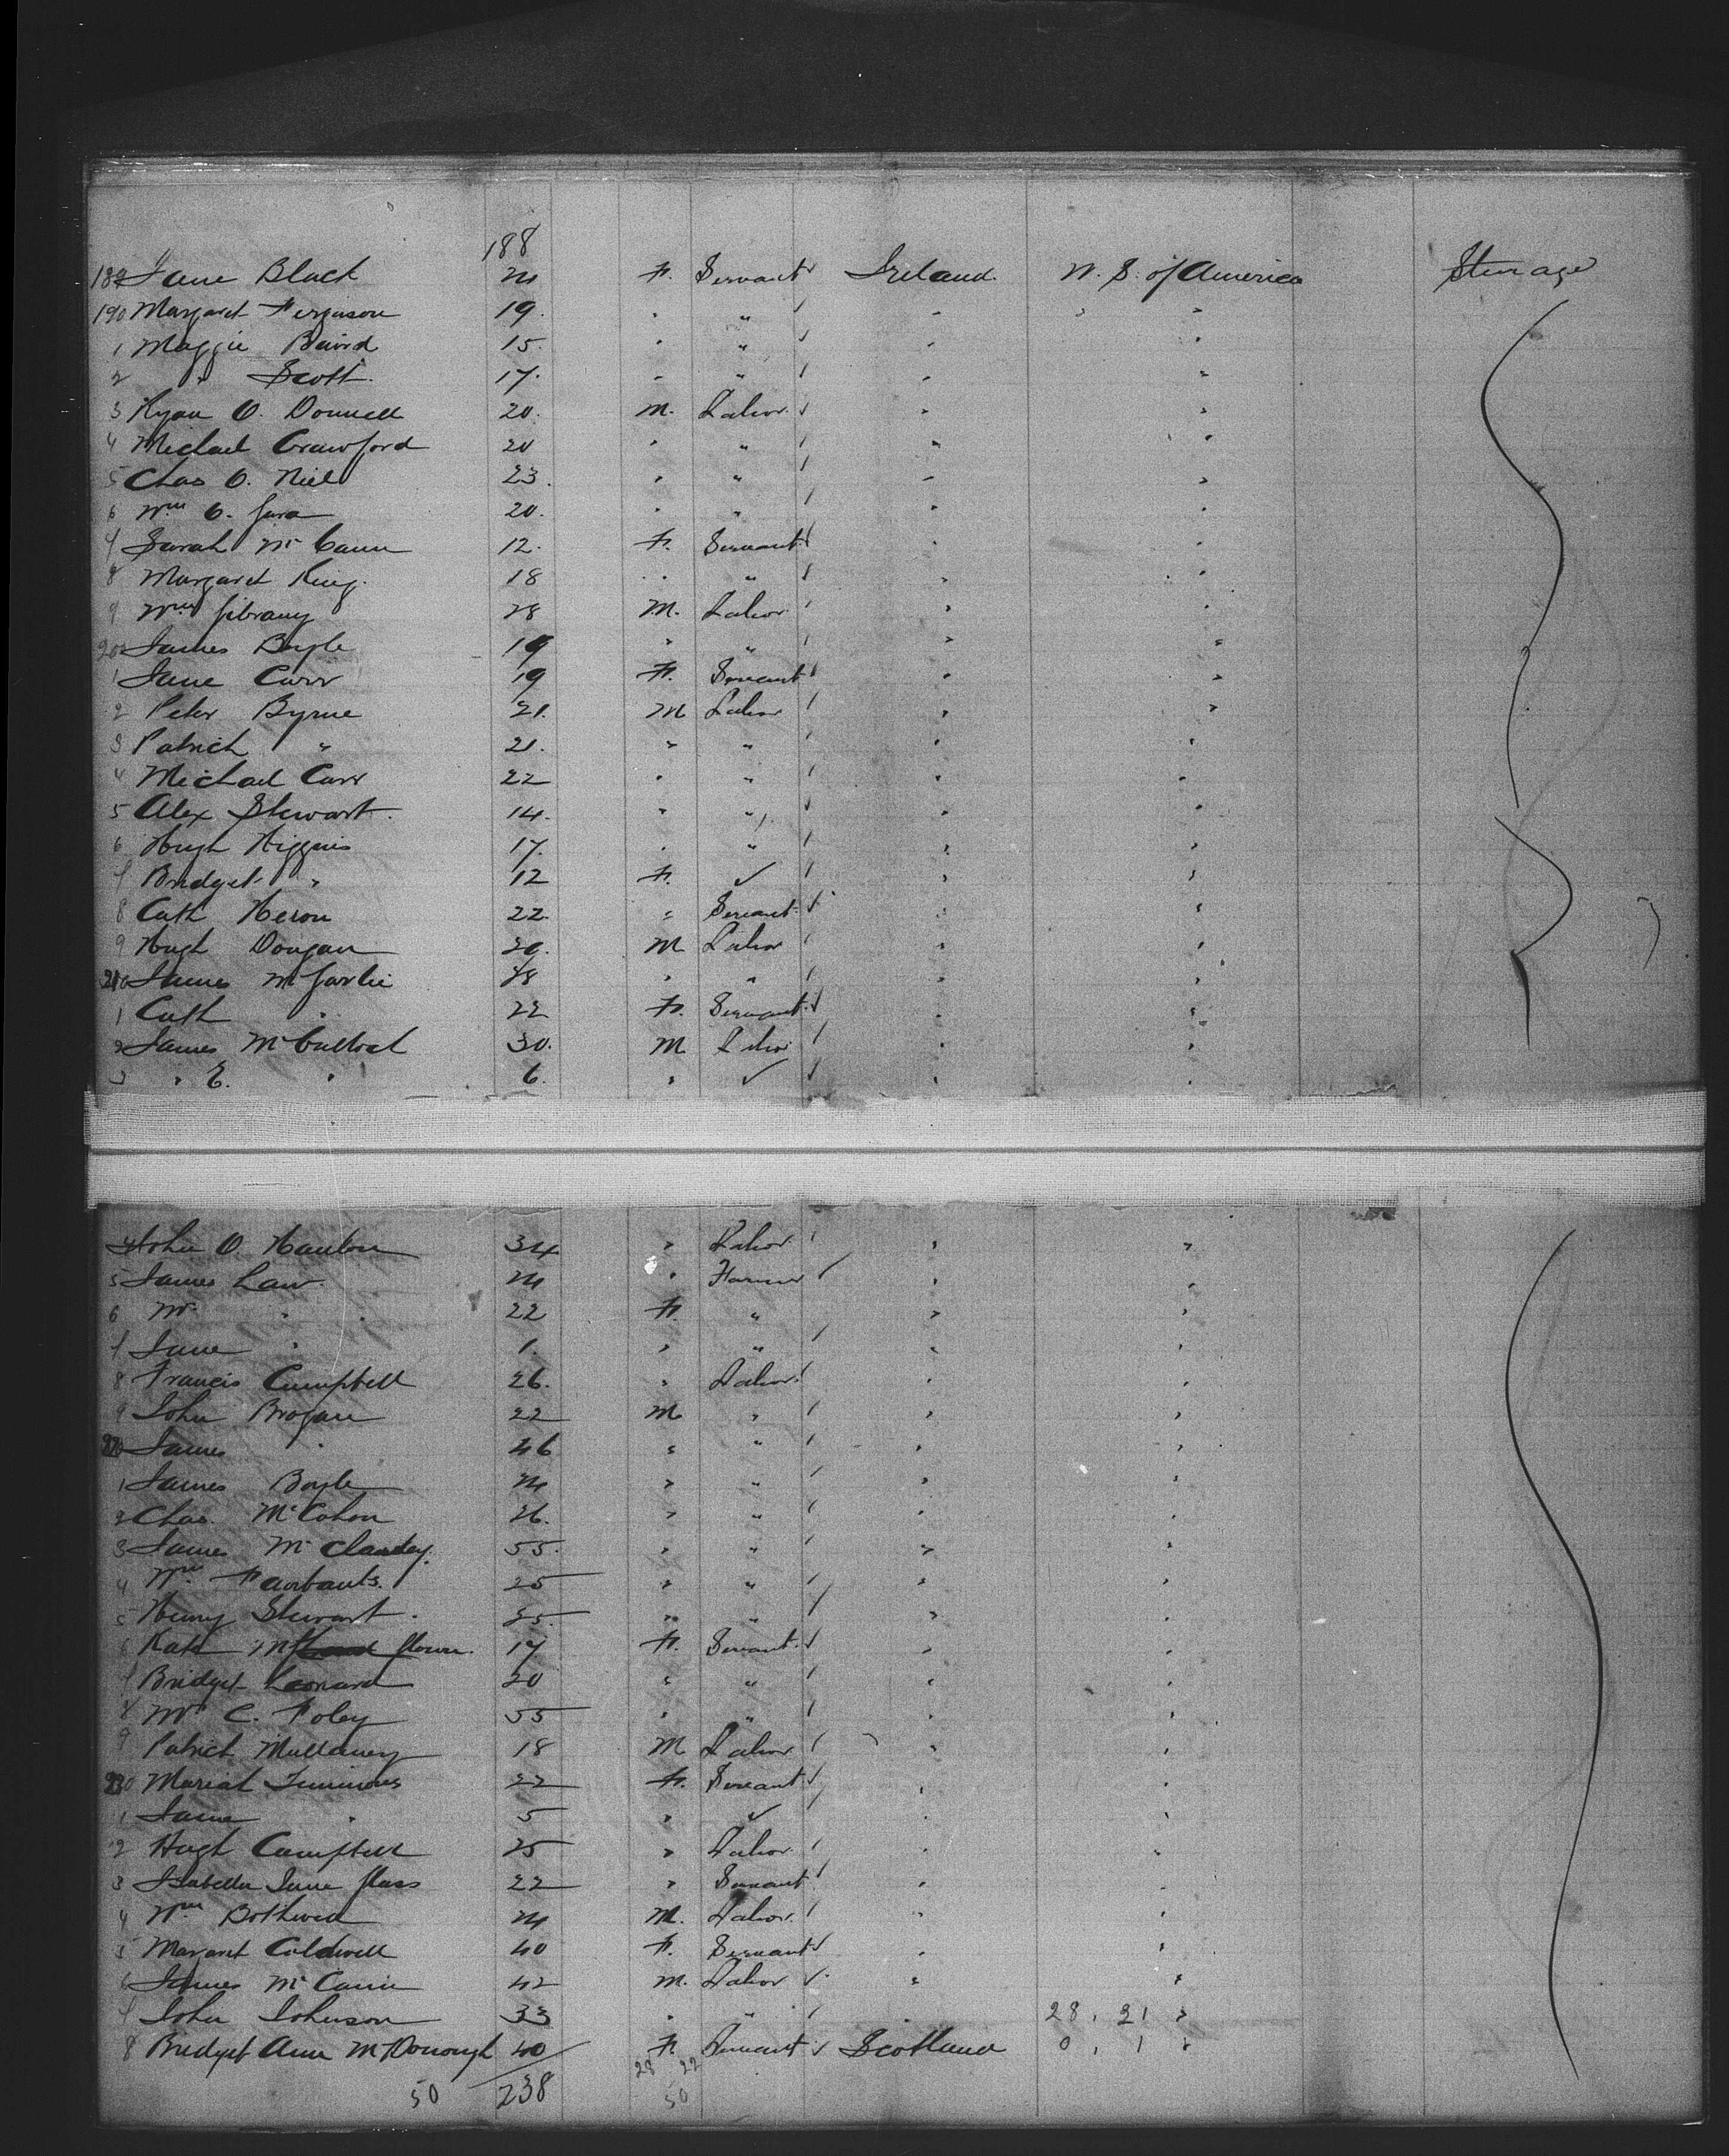 188
189 Jane Black 24 F. Servant Ireland U. S. of America Steerage
190 Margaret Ferguson 19. " "
1 Maggie Baird 15. " "
2 " Scott. 17. " "
3 Ryan O. Donnell 20. M. Labor
4 Michael Crawford 20 " "
5 Chas O. Niel 23. " "
6 Wm O. Gara 20. " "
7 Sarah McCann 12. F. Servant
8 Margaret King. 18 " "
9 Wm 28 M. Labor
200 James Boyle 19 " "
1 Jane Carr 19 F. Servant
2 Peter Byrne 21. M Labor
3 Patrick " 21. " "
4 Michael Carr 22 " "
5 Alex Stewart. 14. " "
6 Hugh Higgins 17. " "
7 Bridget " 12 F. ✓
8 Cath Heron 22. " Servant
9 Hugh Dougan 20. M Labor
210 James McGarlie 48 " "
1 Cath " 22 F. Servant
2 James McCulloch 30. M Labor
3 " E. " 6. " ✓
4 John O. Hanlon 34 " Labor
5 James Law. 24 " Farmer
6 Mrs " 22 F. "
7 Jane " 1. " "
8 Francis Campbell 26. " Labor
9 John Brogan 22 M "
220 James " 46 " "
1 James Boyle 24 " "
2 Chas. McCahon 26. " "
3 James 55. " "
4 Wm Fairbanks. 25 " "
5 Henry Stewart. 25 " "
6 Kate 17 F. Servant
7 Bridget Leonard 20 " "
8 Mrs C. Foley 55 " "
9 Patrick Mullaney 18 M Labor
230 Mariah Timmons 22 F. Servant
1 Jane " 5 " ✓
2 Hugh Campbell 25 " Labor
3 Isabella Jane Glass 22 " Servant
4 Wm Bothwell 24 M. Labor
5 Margaret Coldwell 40 F. Servant
6 James McCann 42 M. Labor
7 John Johnson 33 " " 28, 21 "
8 Bridget Ann McDonough 40 F. Servant Scotland 0, 1 "
28 22
50 238 50